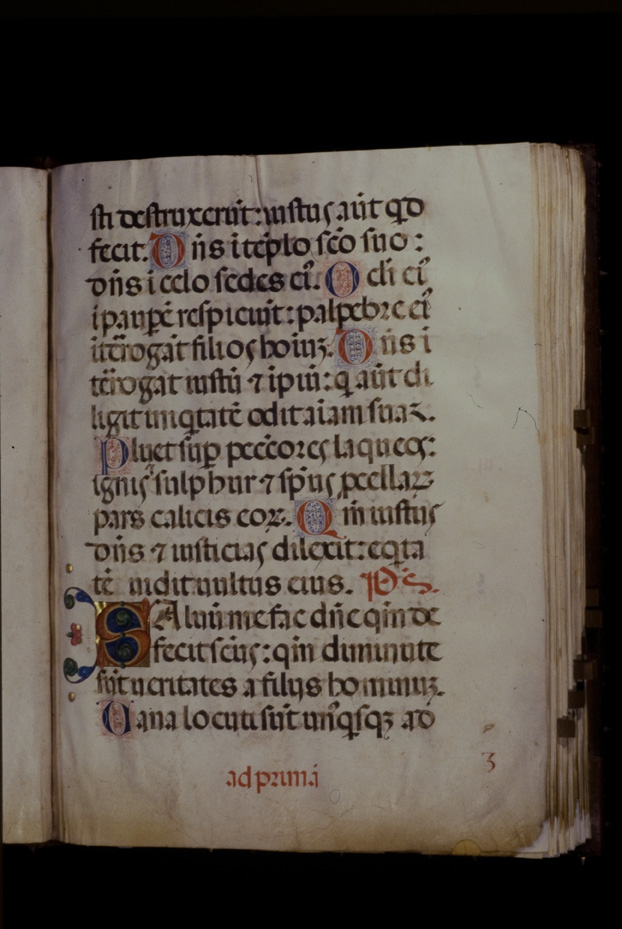 sti destruxerūt: iustus aūt qd
fecit. Dn̄s ī tēplo sc̄o suo:
dn̄s ī celo sedes eī. Oc̄li eī
ī paupē respiciūt: palpebre eī
īterrogāt filios hoīuꝫ. Dn̄s ī
tērogat iustū ⁊ ipiū: q aūt di
ligit iniqtatē odit aīam suaꝫ.
Pluet sup pecc̄ores laqueos:
ignis sulphur ⁊ sp̄us pcellaꝝ
pars calicis eoꝝ. Qm̄ iustus
dn̄s ⁊ iusticias dilexit: eqta
tē uidit uultus eius. Ps.
SAluū me fac dn̄e qm̄ de
fecit sc̄us: qm̄ diminute
sūt ueritates a filiis hominuꝫ.
Uana locuti sūt unqsqꝫ ad
3
ad primā